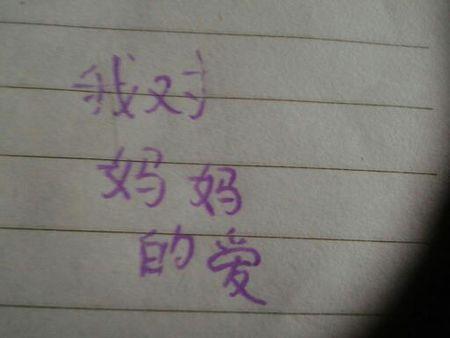 我对
妈妈
的爱